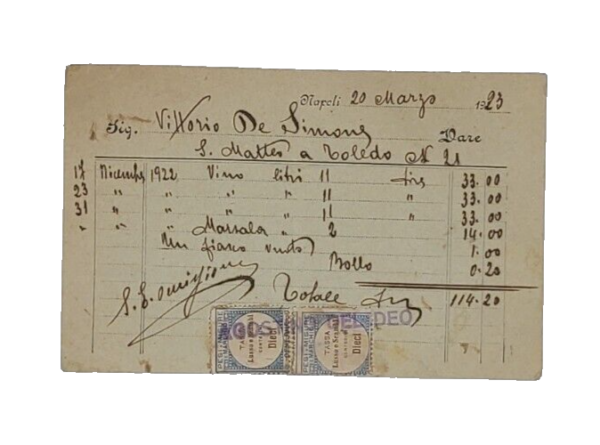 Napoli 20 Marzo 1923
Sig. Vittorio De Simone
Dare
S. Matteo a Toledo N 21
17 Dicembre 1922 Vino litri 11 Lire 33.00
23 " " " " 11 " 33.00
31 " " " " 11 " 33.00
" " " Marsala " 2 14.00
Un fiasco vuoto 1.00
Bollo 0.20
S. E. omissione Totale 114.20
DEO
TASSA Lusso e Scambi Dieci
TASSA Lusso e Scambi Dieci